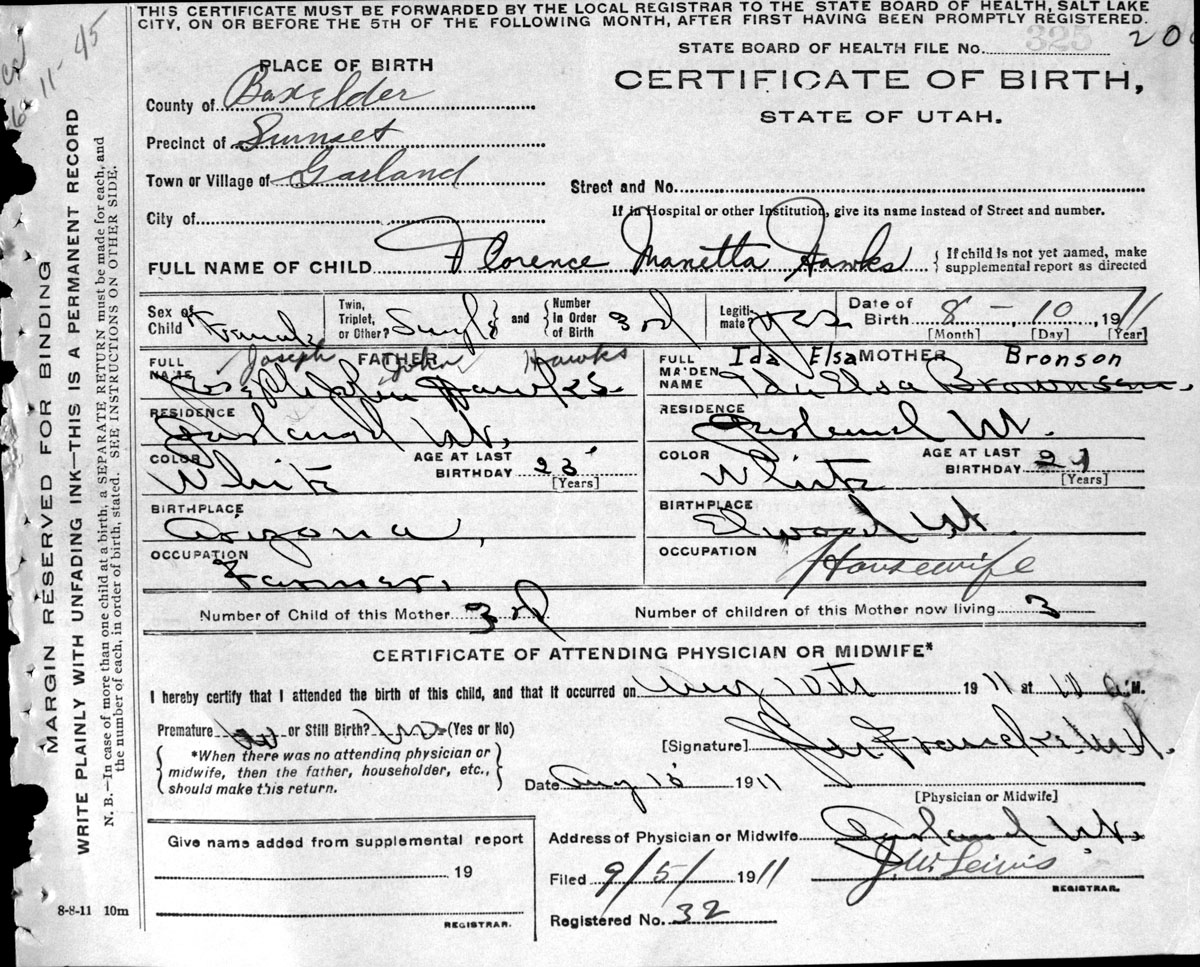 THIS CERTIFICATE MUST BE FORWARDED BY THE LOCAL REGISTRAR TO THE STATE BOARD OF HEALTH, SALT LAKE
CITY, ON OR BEFORE THE 5TH OF THE FOLLOWING MONTH, AFTER FIRST HAVING BEEN PROMPTLY REGISTERED.
11-45
STATE BOARD OF HEALTH FILE NO. 325
CERTIFICATE OF BIRTH,
STATE OF UTAH.
PLACE OF BIRTH
County of Boxelder
Precinct of Sunset
Town or Village of Garland
Street and No.
City of
If in Hospital or other Institution, give its name instead of Street and number.
FULL NAME OF CHILD Florence Manetta Hawks { If child is not yet named, make
supplemental report as directed
Sex of Child Female
Twin, Triplet, or Other? Single and { Number In Order of Birth 3rd
Legitimate? yes
Date of Birth 8 - 10, 1911
[Month] [Day] [Year]
Joseph John Hawks
FULL NAME FATHER Hawks
Ida Elsa Bronson
FULL MAIDEN NAME MOTHER Ida Elsa Brownson
RESIDENCE Garland Ut.
RESIDENCE Garland Ut.
COLOR White AGE AT LAST BIRTHDAY 23 [Years]
COLOR White AGE AT LAST BIRTHDAY 21 [Years]
BIRTHPLACE Arizona
BIRTHPLACE Elwood Ut.
OCCUPATION Farmer
OCCUPATION Housewife
Number of Child of this Mother 3rd Number of children of this Mother now living 3
CERTIFICATE OF ATTENDING PHYSICIAN OR MIDWIFE*
I hereby certify that I attended the birth of this child, and that it occurred on Aug 10th 1911 at M.
Premature no or Still Birth? no (Yes or No)
{ *When there was no attending physician or
midwife, then the father, householder, etc.,
should make this return. }
[Signature] Francke M.D.
Date Aug 1911
[Physician or Midwife]
Give name added from supplemental report
19
REGISTRAR.
Address of Physician or Midwife Garland Ut.
Filed 9/5/ 1911 J.W. Lewis
REGISTRAR.
Registered No. 32
8-8-11 10m
MARGIN RESERVED FOR BINDING
WRITE PLAINLY WITH UNFADING INK—THIS IS A PERMANENT RECORD
N. B.—In case of more than one child at a birth, a SEPARATE RETURN must be made for each, and
the number of each, in order of birth, stated. SEE INSTRUCTIONS ON OTHER SIDE.